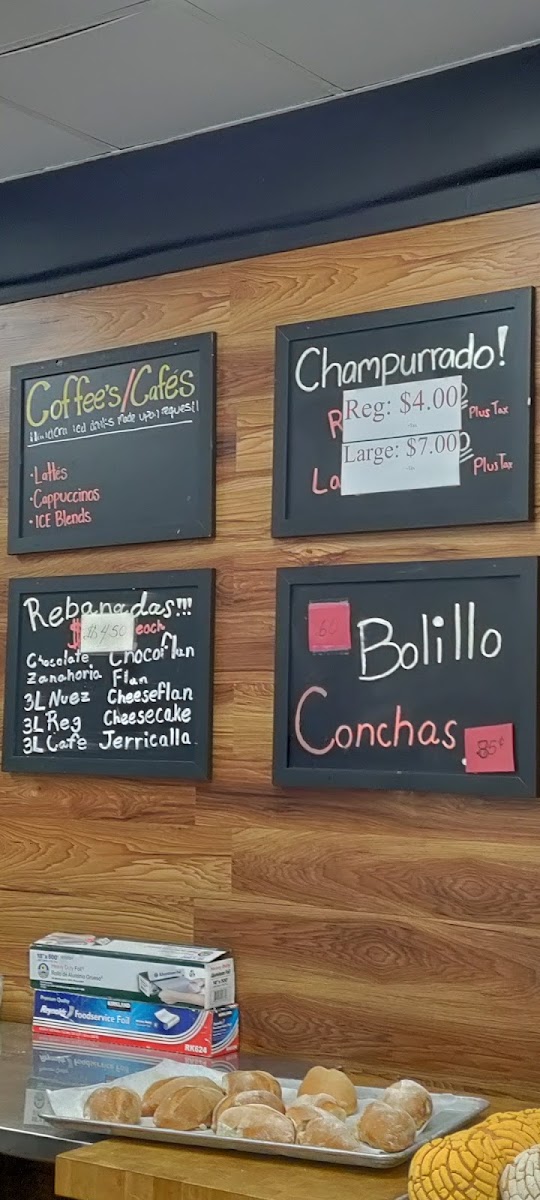 Coffee's/Cafés
iced drinks made upon request!
·Lattés
·Cappuccinos
·ICE Blends
Champurrado!
Reg: $4.00
Plus Tax
Large: $7.00
Plus Tax
Rebanadas!!!
$4.50 each
Chocolate Chocoflan
Zanahoria Flan
3L Nuez Cheeseflan
3L Reg Cheesecake
3L Café Jerricalla
60 Bolillo
Conchas 85¢
Heavy Duty Foil
Premium Quality
Reynolds Foodservice Foil
KIRKLAND
RK624